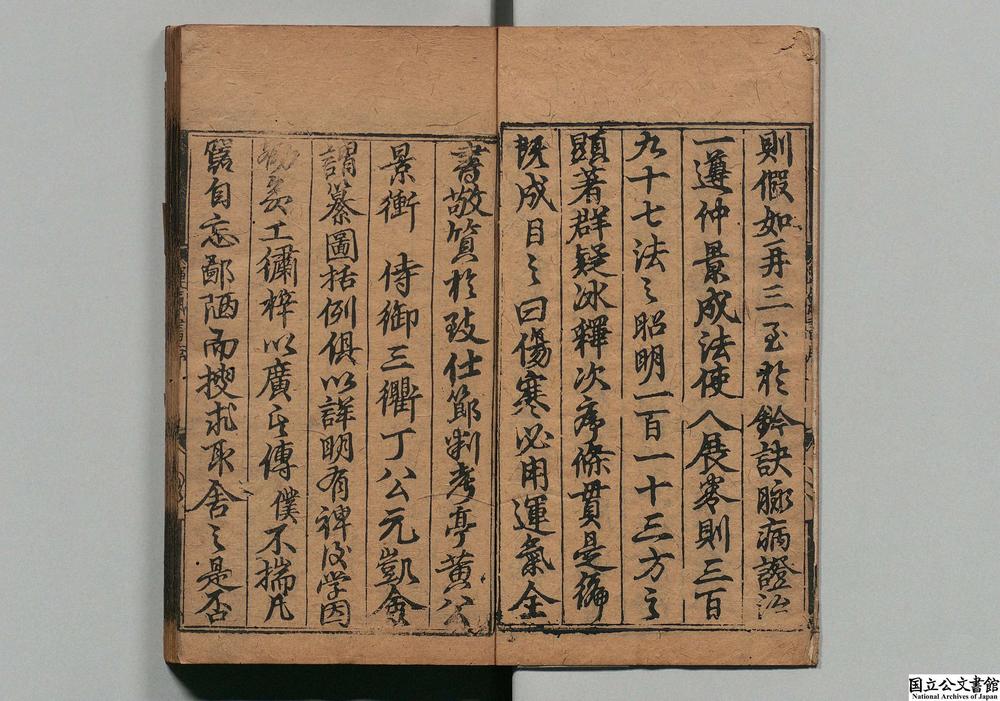 則假如再三至於鈐訣脉病證治
一遵仲景成法使人展卷則三百
九十七法之昭明一百一十三方之
顯著群疑冰釋次序條貫是編
既成目之曰傷寒必用運氣全
書敬質於致仕節判考亭黃公
景衝　侍御三衢丁公元凱僉
謂纂圖括例俱以詳明有裨後学因
勸募工繡梓以廣其傳僕不揣凡
窳自忘鄙陋而搜求取舍之是否
国立公文書館
National Archives of Japan